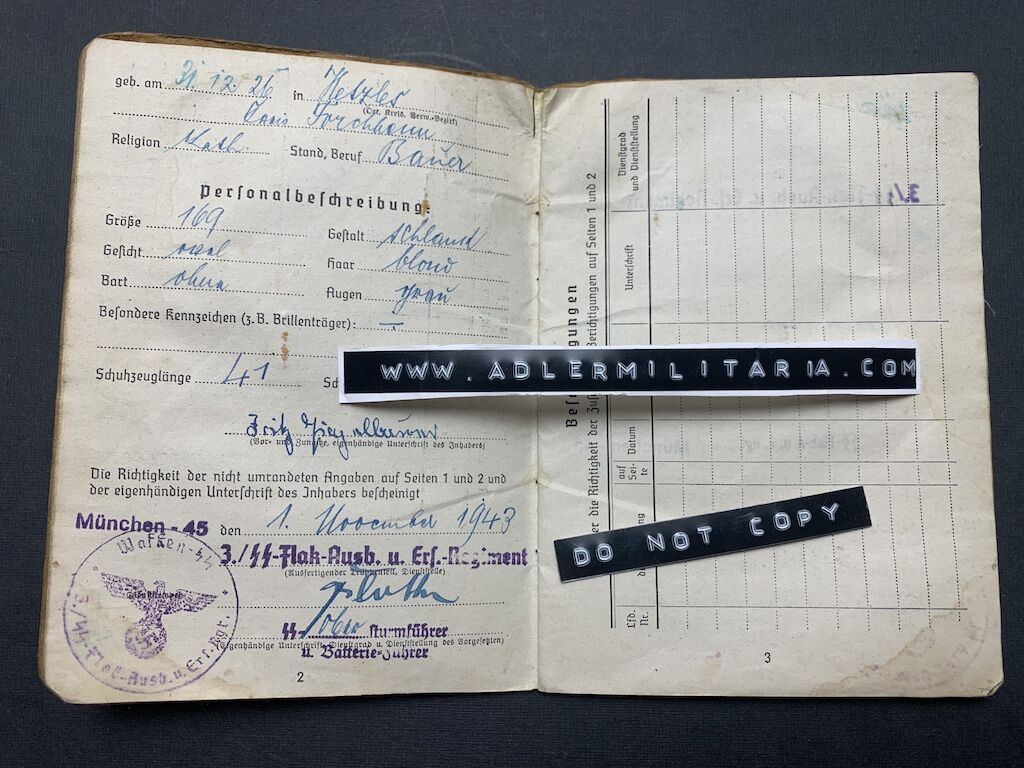 geb. am 31. 12. 26 in Hetzles
(Ort, Kreis, Verw.-Bezirk)
Forchheim
Religion Kath Stand, Beruf Bauer
Personalbeschreibung:
Größe 169 Gestalt schlank
Gesicht oval Haar blond
Bart ohne Augen grau
Besondere Kennzeichen (z.B. Brillenträger): —
Schuhzeuglänge 41 Sch
WWW.ADLERMILITARIA.COM
Fritz
(Vor- und Zuname, eigenhändige Unterschrift des Inhabers)
Die Richtigkeit der nicht umrandeten Angaben auf Seiten 1 und 2 und
der eigenhändigen Unterschrift des Inhabers bescheinigt
München - 45 den 1. November 1943
3./SS-Flak-Ausb. u. Ers.-Regiment
(Ausfertigender Truppenteil, Dienststelle)
SS-Ober sturmführer
(Eigenhändige Unterschrift, Dienstgrad u. Dienststellung des Vorgesetzten)
u. Batterie-Führer
Waffen-SS
3./SS-Flak-Ausb. u. Ers. Rgt.
2
DO NOT COPY
der die Richtigkeit der Berichtigungen auf Seiten 1 und 2
Dienstgrad
und Dienststellung
Unterschrift
Datum
auf
Sei-
te
Lfd.
Nr.
3